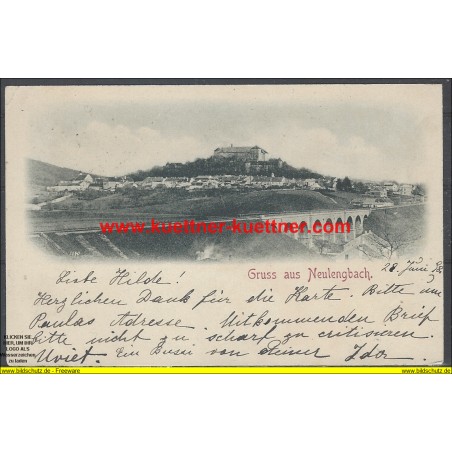 www.kuettner-kuettner.com
Gruss aus Neulengbach.
28. Juni 98
Liebe Hilde!
Herzlichen Dank für die Karte. Bitte um
Paulas Adresse. Mitkommenden Brief
bitte nicht zu scharf zu critisieren.
Ein Bussi von deiner Ida
KLICKEN SIE
UM IHR
LOGO ALS
Wasserzeichen
zu laden
www.bildschutz.de - Freeware
www.bildschutz.de